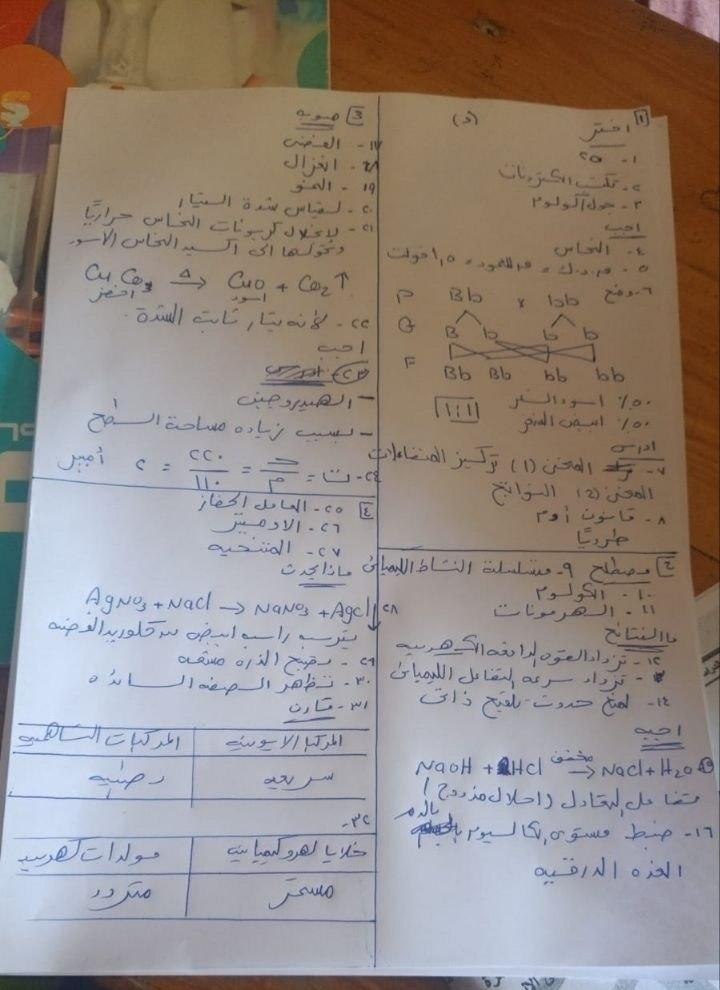 (٤)
١ اختر
١- ٢٥
٢- تكتسب الكترونات
٣- جول/كولوم
اجب
٤- النحاس
٥- ق.د.ك = ق.د للعمود = ١,٥ فولت
٦- وضح
P Bb × bb
G B b b b
F Bb Bb bb bb
٥٠٪ اسود الشعر
٥٠٪ ابيض الشعر
١:١
ادرس
٧- المنحنى (١) تركيز المتفاعلات
المنحنى (٢) النواتج
٨- قانون أوم
طرديًا
٢ مصطلح ٩- متسلسلة النشاط الكيميائى
١٠- الكولوم
١١- الهرمونات
ما النتائج
١٢- تزداد القوة الدافعة الكهربية
- تزداد سرعة التفاعل الكيميائى
١٤- لمنع حدوث تلقيح ذاتى
اجب
NaOH + HCl مخفف → NaCl + H₂O
تفاعل التعادل (احلال مزدوج)
١٦- ضبط مستوى الكالسيوم بالدم
الغدة الدرقية
٣ صوب
١٧- الفضى
١٨- الغزال
١٩- النمو
٢٠- لقياس شدة التيار
٢١- لانحلال كربونات النحاس حراريًا
وتحولها الى اكسيد النحاس الاسود
CuCO₃ Δ→ CuO + CO₂↑
اخضر اسود
٢٢- لأنه تيار ثابت الشدة.
اجب
٢٣-
- الهيدروجين
- بسبب زيادة مساحة السطح
٢٤- ت = جـ/م = ٢٢٠/١١٠ = ٢ أمبير
٤ ٢٥- العامل الحفاز
٢٦- الاوميتر
٢٧- المتنحية
ماذا يحدث
٢٨- AgNO₃ + NaCl → NaNO₃ + AgCl↓
يترسب راسب ابيض من كلوريد الفضة
٢٩- تصبح الذرة مشعة
٣٠- تظهر الصفة السائدة
٣١- قارن
المركبات الايونية المركبات التساهمية
سريعة بطيئة
٣٢-
خلايا كهروكيميائية مولدات كهربية
مستمر متردد